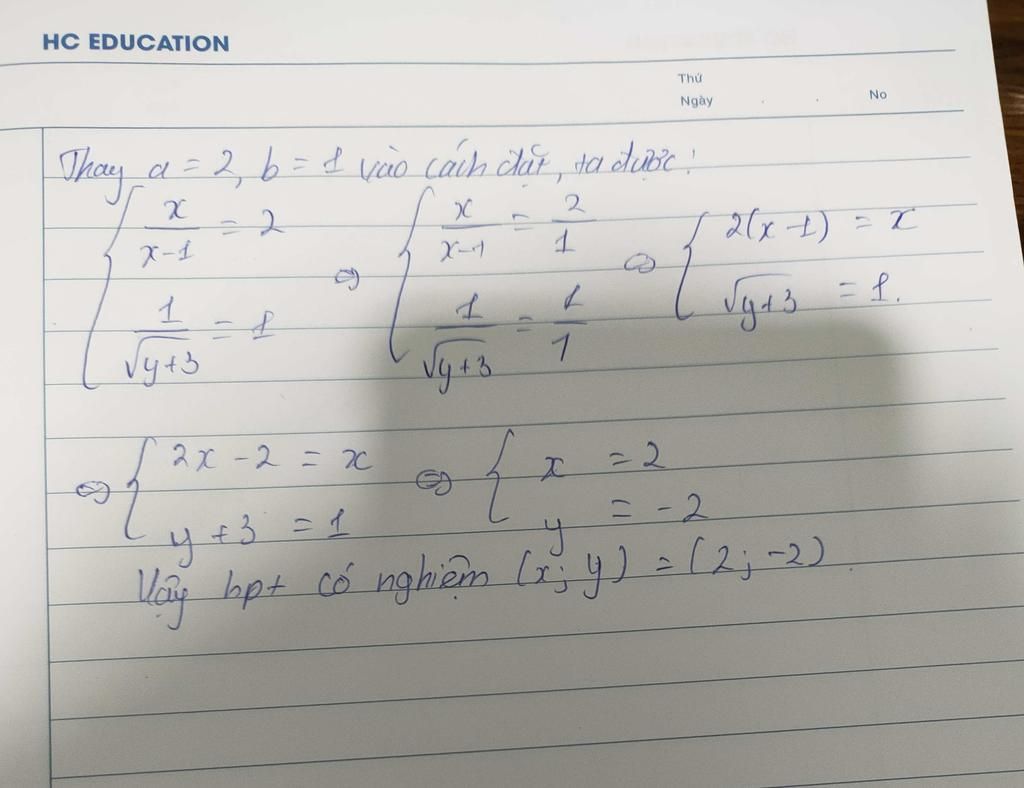 HC EDUCATION
Thứ
Ngày . . No
Thay a = 2, b = 1 vào cách đặt, ta được:
{ x/(x-1) = 2 ⇔ { x/(x-1) = 2/1 ⇔ { 2(x-1) = x
{ 1/√(y+3) = 1 { 1/√(y+3) = 1/1 { √(y+3) = 1.
⇔ { 2x - 2 = x ⇔ { x = 2
{ y + 3 = 1 { y = -2
Vậy hpt có nghiệm (x; y) = (2; -2).